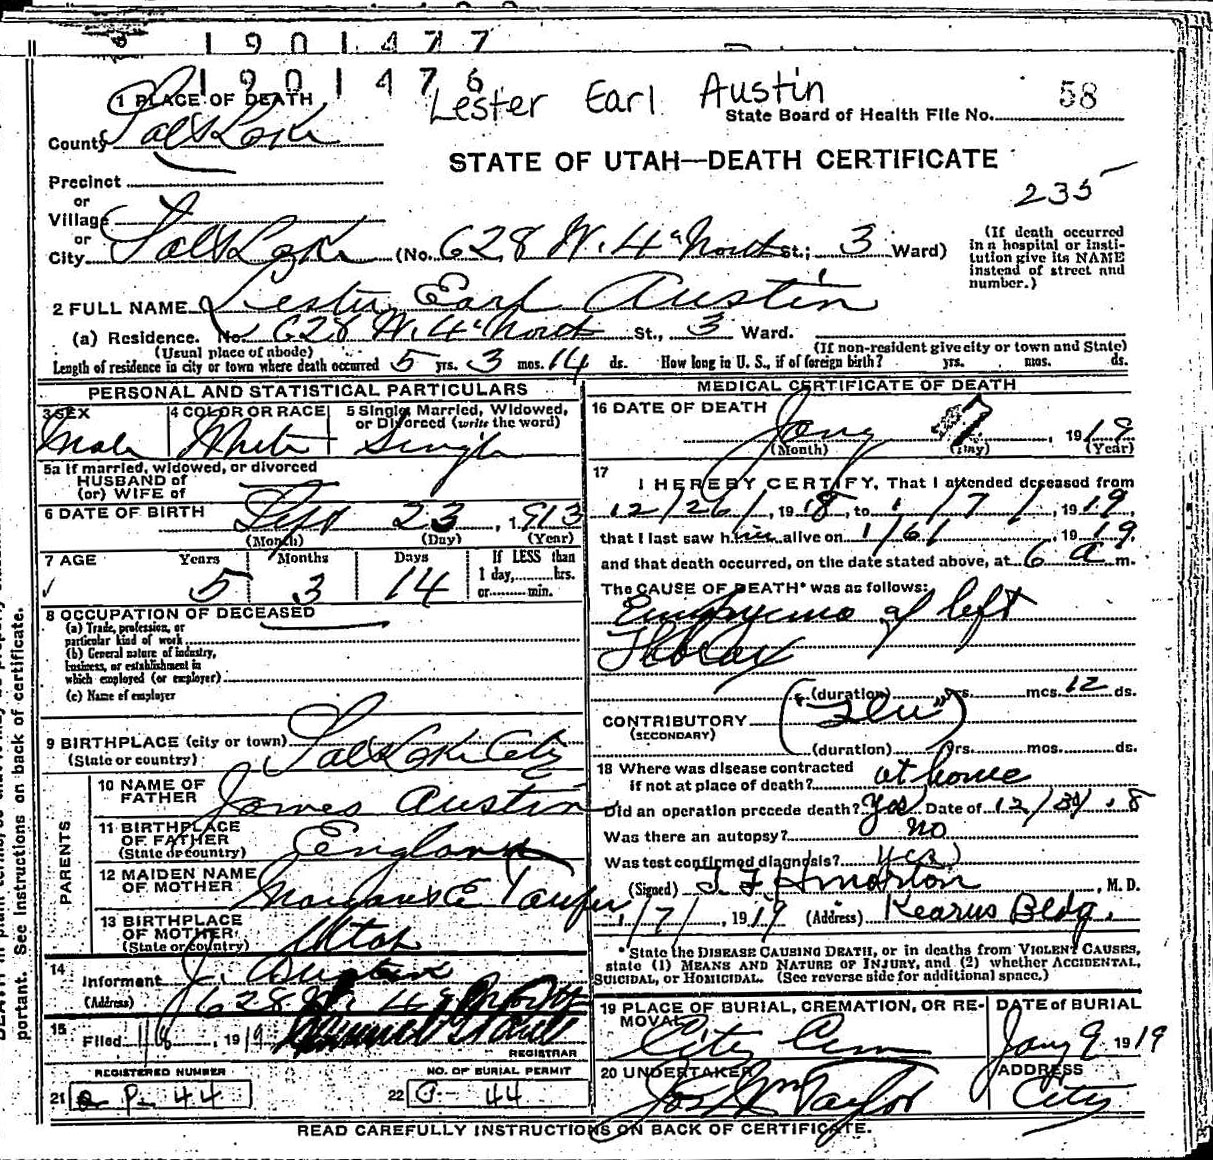 1901477
1901476
Lester Earl Austin
58
1 PLACE OF DEATH
State Board of Health File No.
County Salt Lake
STATE OF UTAH—DEATH CERTIFICATE
Precinct
235
or
Village
or
City Salt Lake (No. 628 W. 4" North St.; 3 Ward)
(If death occurred in a hospital or institution give its NAME instead of street and number.)
2 FULL NAME Lester Earl Austin
(a) Residence. No. 628 W. 4" North St., 3 Ward.
(Usual place of abode) (If non-resident give city or town and State)
Length of residence in city or town where death occurred 5 yrs. 3 mos. 14 ds. How long in U. S., if of foreign birth? yrs. mos. ds.
PERSONAL AND STATISTICAL PARTICULARS
3 SEX 4 COLOR OR RACE 5 Single, Married, Widowed, or Divorced (write the word)
Male White Single
5a If married, widowed, or divorced
HUSBAND of
(or) WIFE of
6 DATE OF BIRTH Sept 23, 1913
(Month) (Day) (Year)
7 AGE Years Months Days If LESS than
1 day, hrs.
or min.
5 3 14
8 OCCUPATION OF DECEASED
(a) Trade, profession, or
particular kind of work
(b) General nature of industry,
business, or establishment in
which employed (or employer)
(c) Name of employer
9 BIRTHPLACE (city or town) Salt Lake City
(State or country)
PARENTS
10 NAME OF FATHER James Austin
11 BIRTHPLACE OF FATHER England
(State or country)
12 MAIDEN NAME OF MOTHER Margaret E Taufer
13 BIRTHPLACE OF MOTHER Utah
(State or country)
14
Informant J. Austin
(Address) 628 W. 4" North
15
Filed 1/8, 1919
REGISTRAR
REGISTERED NUMBER NO. OF BURIAL PERMIT
21 P. 44 22 44
MEDICAL CERTIFICATE OF DEATH
16 DATE OF DEATH
Jany 7, 1919
(Month) (Day) (Year)
17
I HEREBY CERTIFY, That I attended deceased from
12/26/, 1918, to 1/7/, 1919,
that I last saw him alive on 1/6/ 1919,
and that death occurred, on the date stated above, at 6 a m.
The CAUSE OF DEATH* was as follows:
Empyema of left
Thorax
(duration) yrs. mos. 12 ds.
CONTRIBUTORY ("Flu")
(SECONDARY)
(duration) yrs. mos. ds.
18 Where was disease contracted
if not at place of death? at home
Did an operation precede death? Yes Date of 12/30/18
Was there an autopsy? no
Was test confirmed diagnosis? yes
(Signed) , M. D.
1/7/, 1919 (Address) Kearns Bldg.
*State the DISEASE CAUSING DEATH, or in deaths from VIOLENT CAUSES,
state (1) MEANS AND NATURE OF INJURY, and (2) whether ACCIDENTAL,
SUICIDAL, or HOMICIDAL. (See reverse side for additional space.)
19 PLACE OF BURIAL, CREMATION, OR REMOVAL DATE of BURIAL
City Cem Jany 9 1919
20 UNDERTAKER ADDRESS
Jos Wm Taylor City
READ CAREFULLY INSTRUCTIONS ON BACK OF CERTIFICATE.
portant. See Instructions on back of certificate.